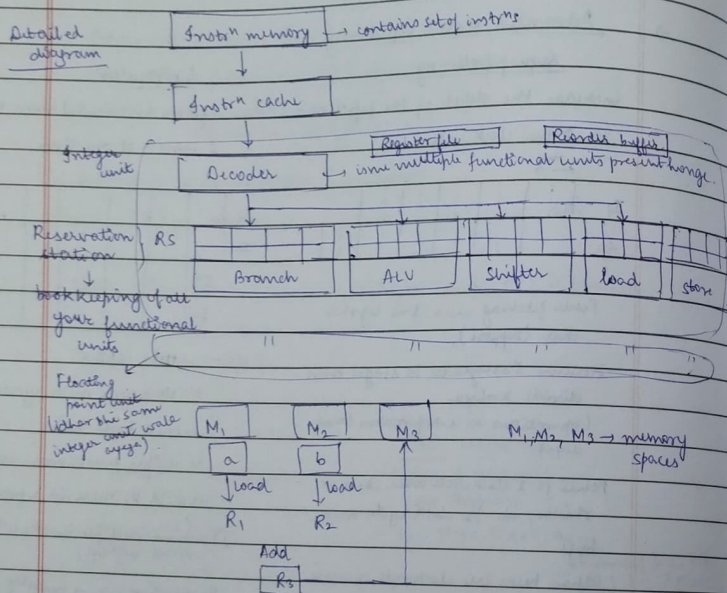 Detailed diagram
Instrⁿ memory → contains set of instrⁿs
Instrⁿ cache
Register file
Reorder buffer
Integer unit
Decoder → isme multiple functional units present honge.
Reservation station } RS
Branch
ALU
Shifter
load
store
↓
bookkeeping of all
your functional
units
"
"
"
"
"
Floating
point unit
(idhar bhi same
integer unit wale
ayega).
M₁
M₂
M₃
M₁, M₂, M₃ → memory
spaces
a
b
load
load
R₁
R₂
Add
R₃